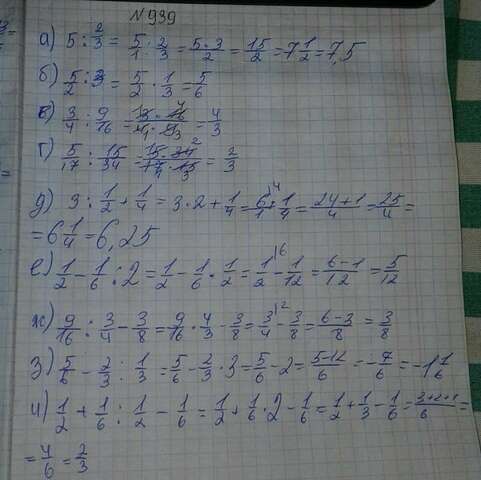 №939
а) 5 : 2/3 = 5/1 : 2/3 = 5·3/2 = 15/2 = 7 1/2 = 7,5
б) 5/2 : 3 = 5/2 · 1/3 = 5/6
в) 3/4 : 9/16 = 3·16/4·9 = 4/3
г) 5/17 : 15/34 = 5·34/17·15 = 2/3
д) 3 : 1/2 + 1/4 = 3·2 + 1/4 = 6/1 + 1/4 = 24+1/4 = 25/4 =
= 6 1/4 = 6,25
е) 1/2 - 1/6 : 2 = 1/2 - 1/6 · 1/2 = 1/2 - 1/12 = 6-1/12 = 5/12
ж) 9/16 : 3/4 - 3/8 = 9/16 · 4/3 - 3/8 = 3/4 - 3/8 = 6-3/8 = 3/8
з) 5/6 - 2/3 : 1/3 = 5/6 - 2/3 · 3 = 5/6 - 2 = 5-12/6 = -7/6 = -1 1/6
и) 1/2 + 1/6 : 1/2 - 1/6 = 1/2 + 1/6 · 2 - 1/6 = 1/2 + 1/3 - 1/6 = 3+2-1/6 =
= 4/6 = 2/3